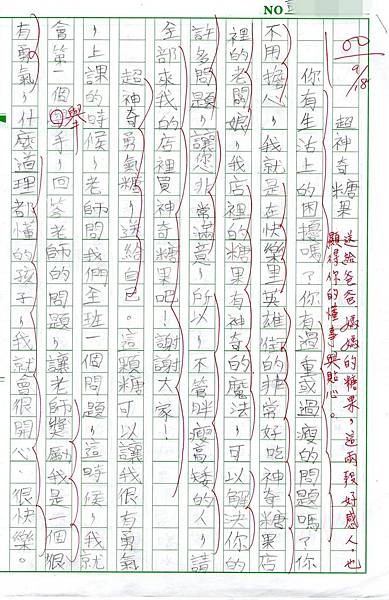 NO
9/18
超神奇糖果
送給爸爸媽媽的糖果，這兩段好感人。也
顯得你的懂事與貼心。
你有生活上的困擾嗎？你有過重或過瘦的問題嗎？你
不用擔心，我就是在快樂里英雄街的非常好吃神奇糖果店
裡的老闆娘，我店裡的糖果有神奇的魔法，可以解決你的
許多問題，讓您非常滿意，所以，不管胖瘦高矮的人，請
全部來我的店裡買神奇糖果吧！謝謝大家！
超神奇勇氣糖，送給自己。這顆糖可以讓我很有勇氣
，上課的時候，老師問我們全班一個問題，這時候，我就
會第一個舉手，回答老師的問題，讓老師獎勵我是一個很
有勇氣，什麼道理都懂的孩子，我就會很開心、很快樂。